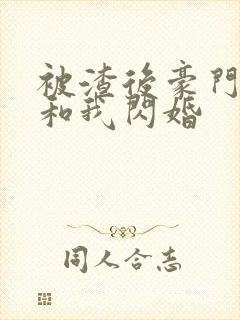 被渣後豪門
和我閃婚
同人合志